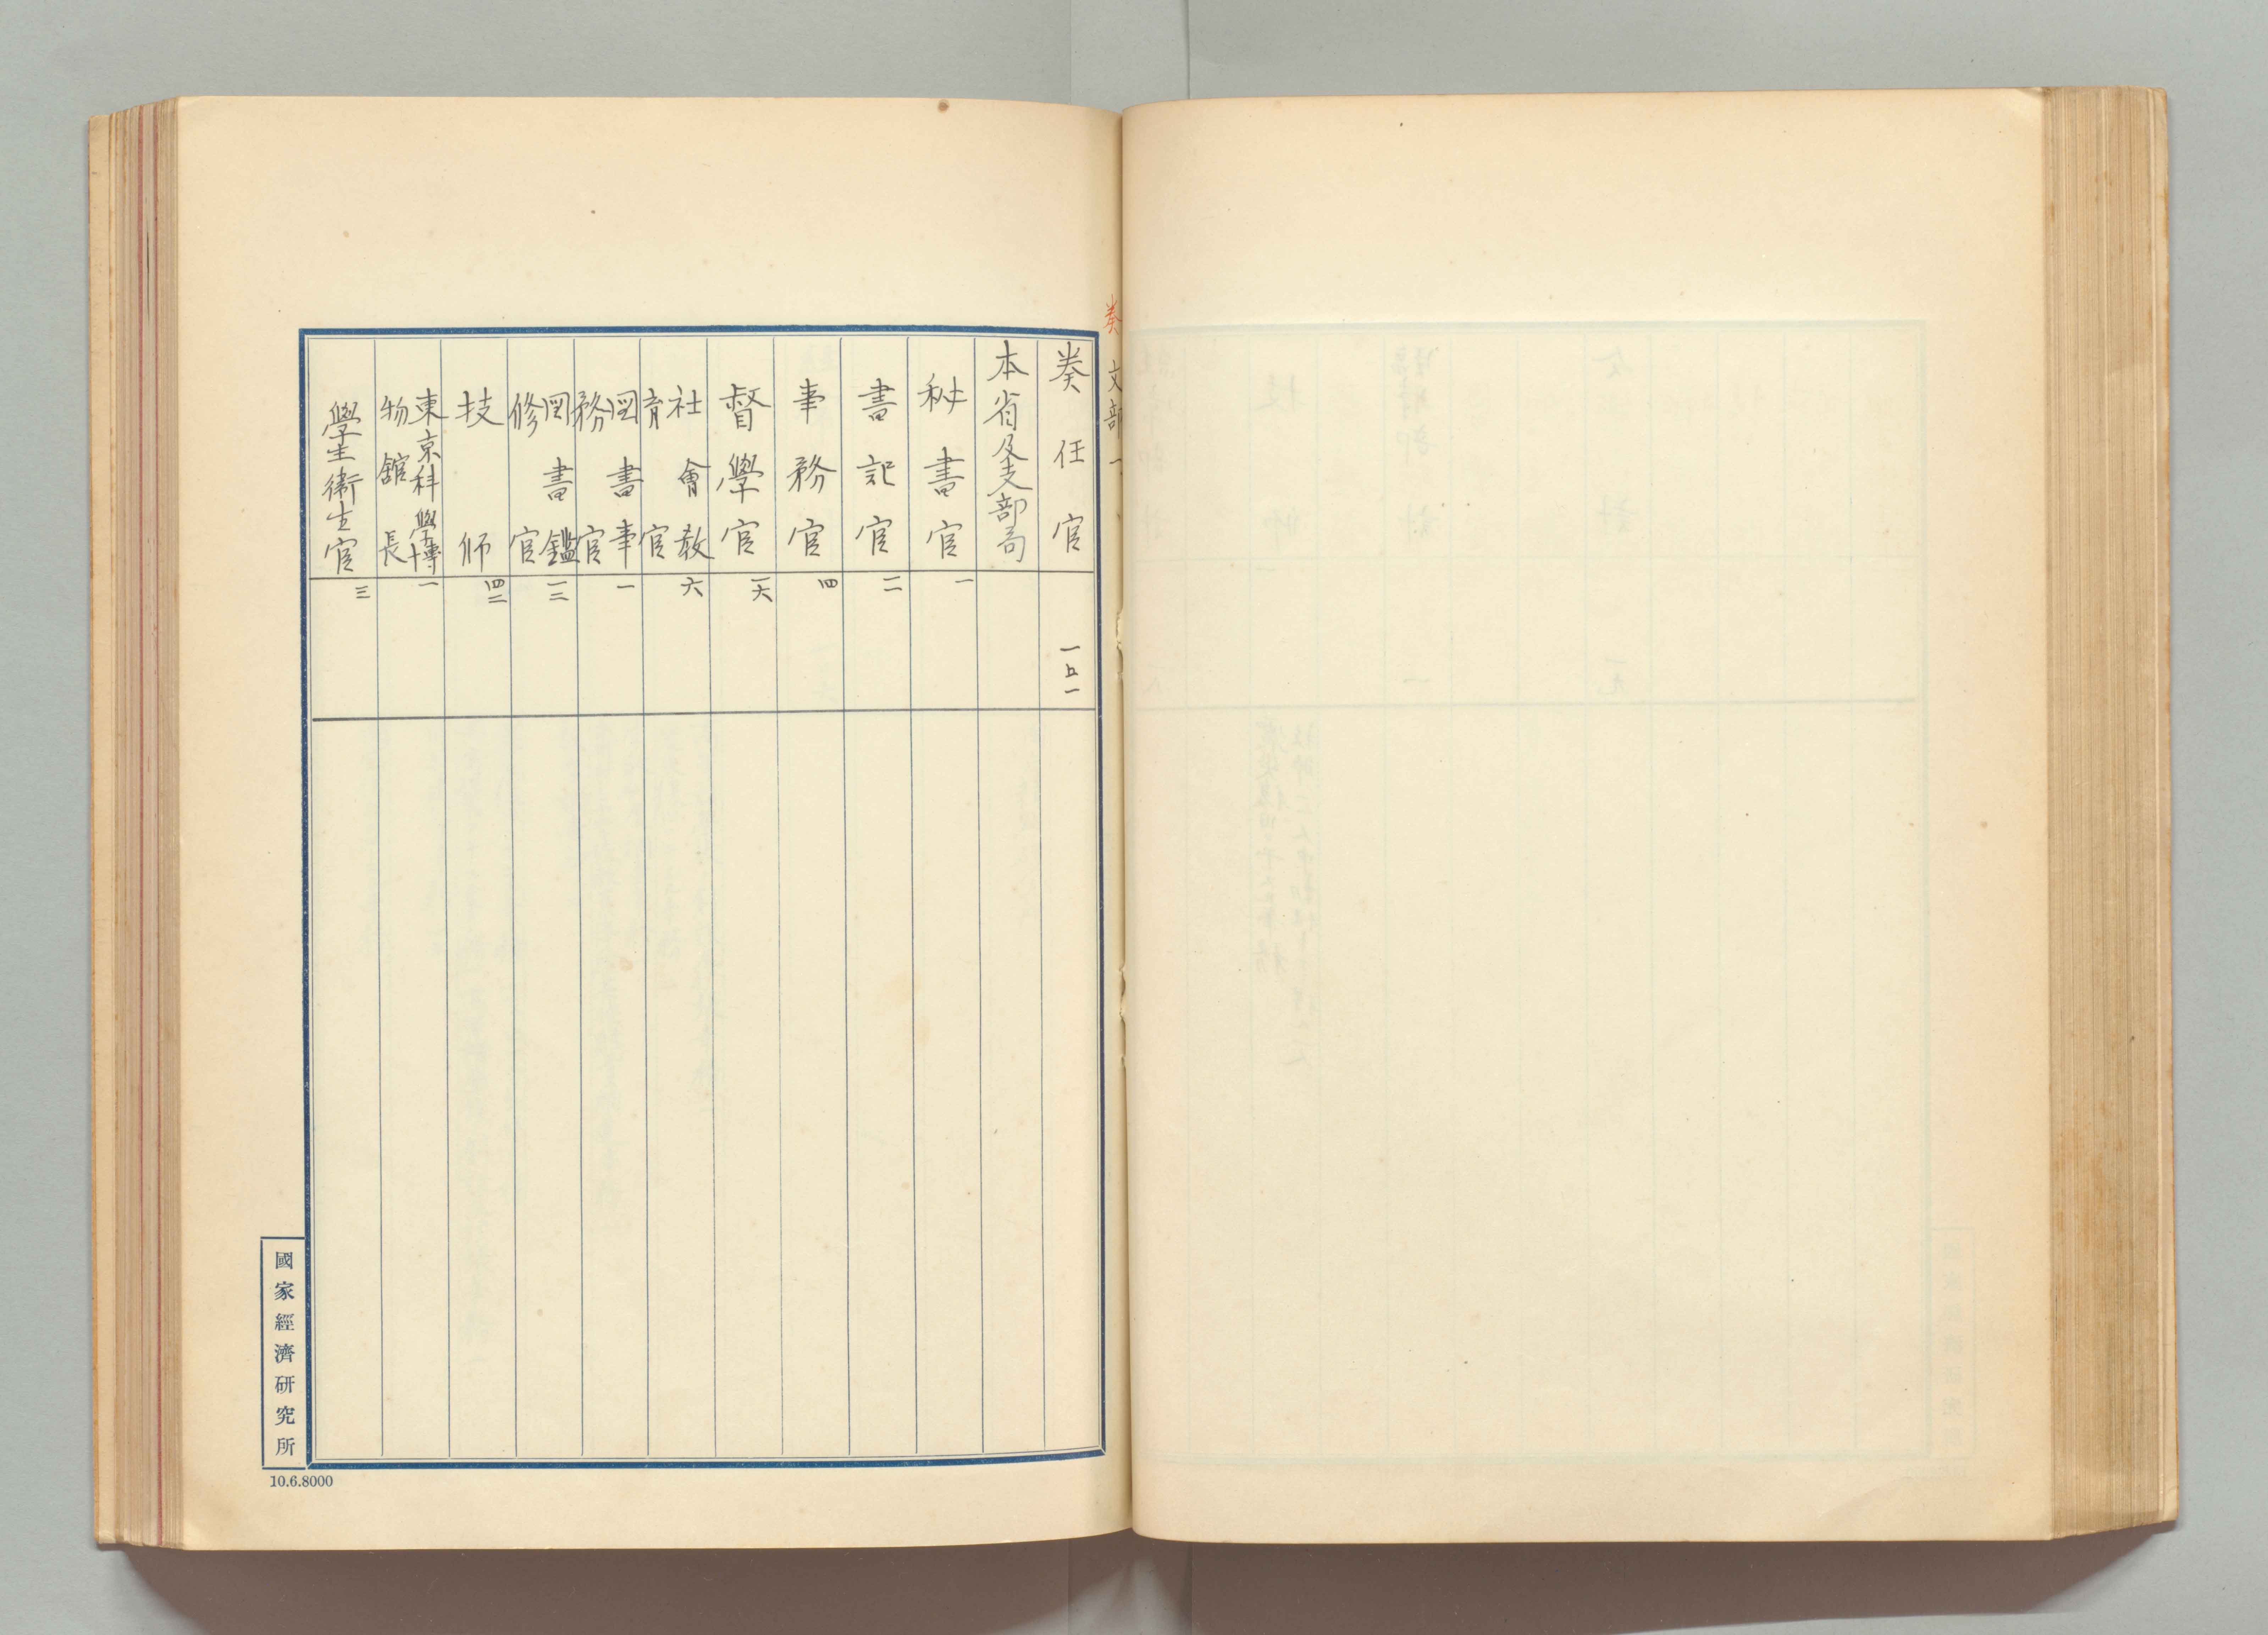 奏 文部 一
奏任官 一五一
本省及支部局
秘書官 一
書記官 二
事務官 四
督學官 一六
社會教育官 六
図書事務官 一
図書鑑修官 一三
技師 四二
東京科學博物館長 一
學生衛生官 三
國家經濟研究所
10.6.8000